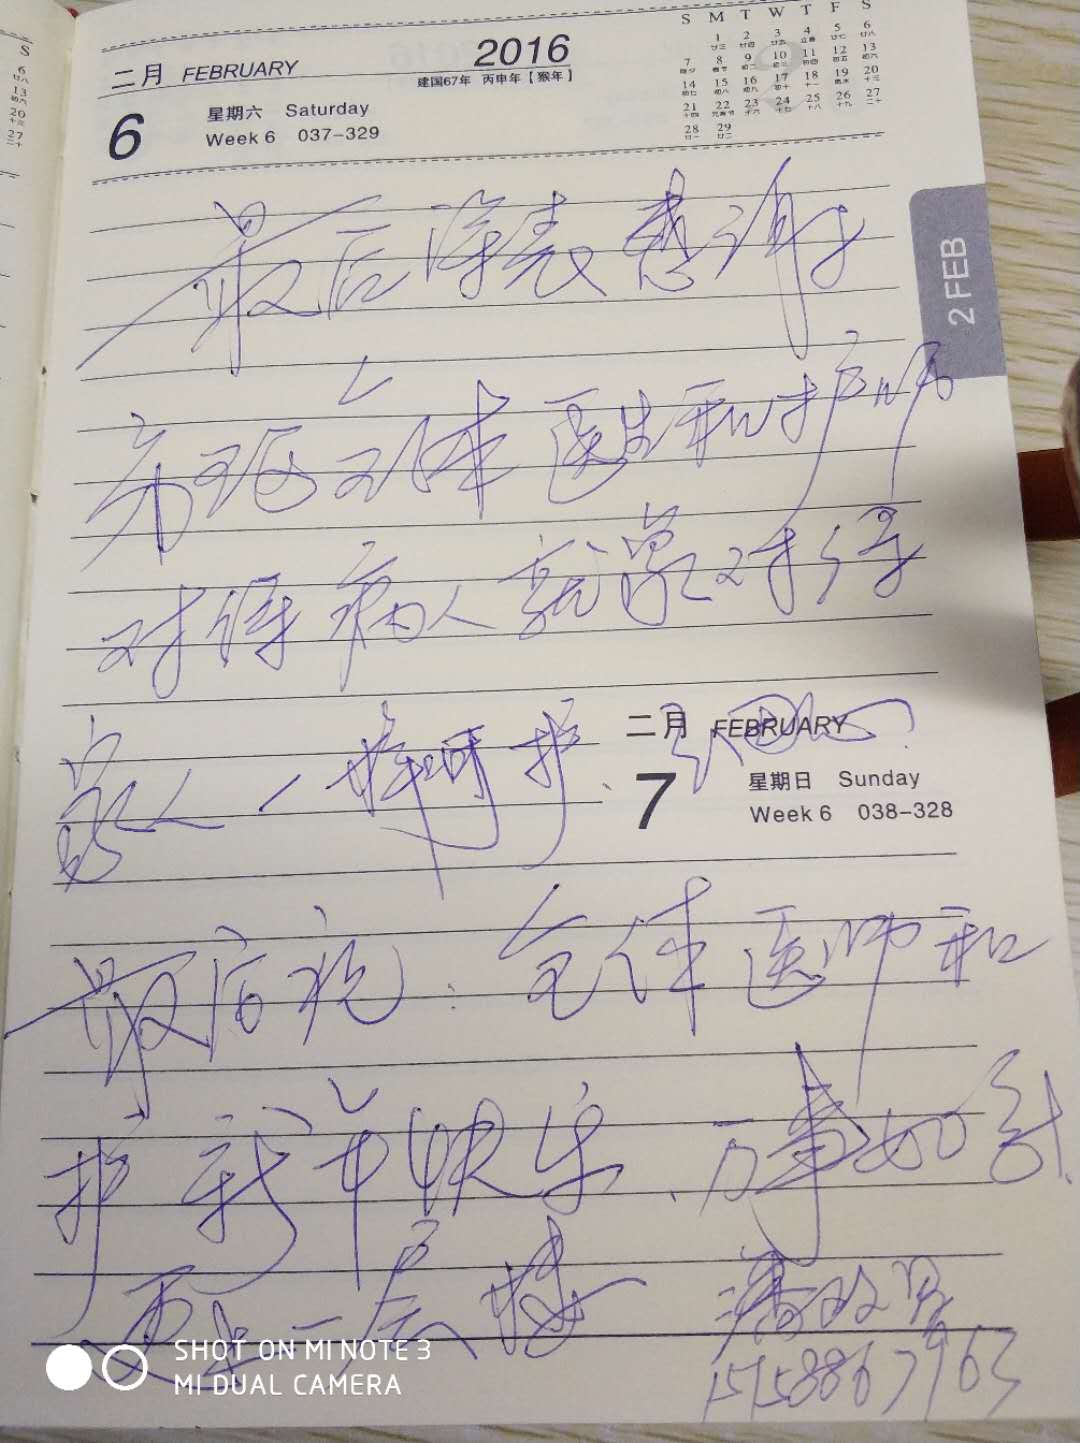 S M T W T F S
1 2 3 4 5 6
7 8 9 10 11 12 13
14 15 16 17 18 19 20
21 22 23 24 25 26 27
28 29
二月 FEBRUARY 2016
建国67年 丙申年【猴年】
6 星期六 Saturday
Week 6 037-329
2 FEB
最后深表感谢
医生和护师
对待病人就象对待
家人一样呵护、
二月 FEBRUARY
7 星期日 Sunday
Week 6 038-328
最后祝:全体医师和
护 新年快乐、万事如意
更上一层楼
SHOT ON MI NOTE 3
MI DUAL CAMERA